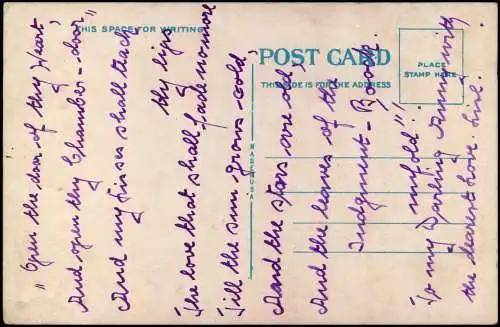 THIS SPACE FOR WRITING
POST CARD
THIS SIDE IS FOR THE ADDRESS
PLACE
STAMP HERE
MADE IN U.S.A.
"Open the door of thy Heart,
And open thy Chamber-door"
And my kisses shall teach
thy lips
The love that shall fade no more
Till the sun grows cold,
And the stars are old,
And the leaves of the
Judgment-Book
unfold!"
To my Darling with
the dearest love.